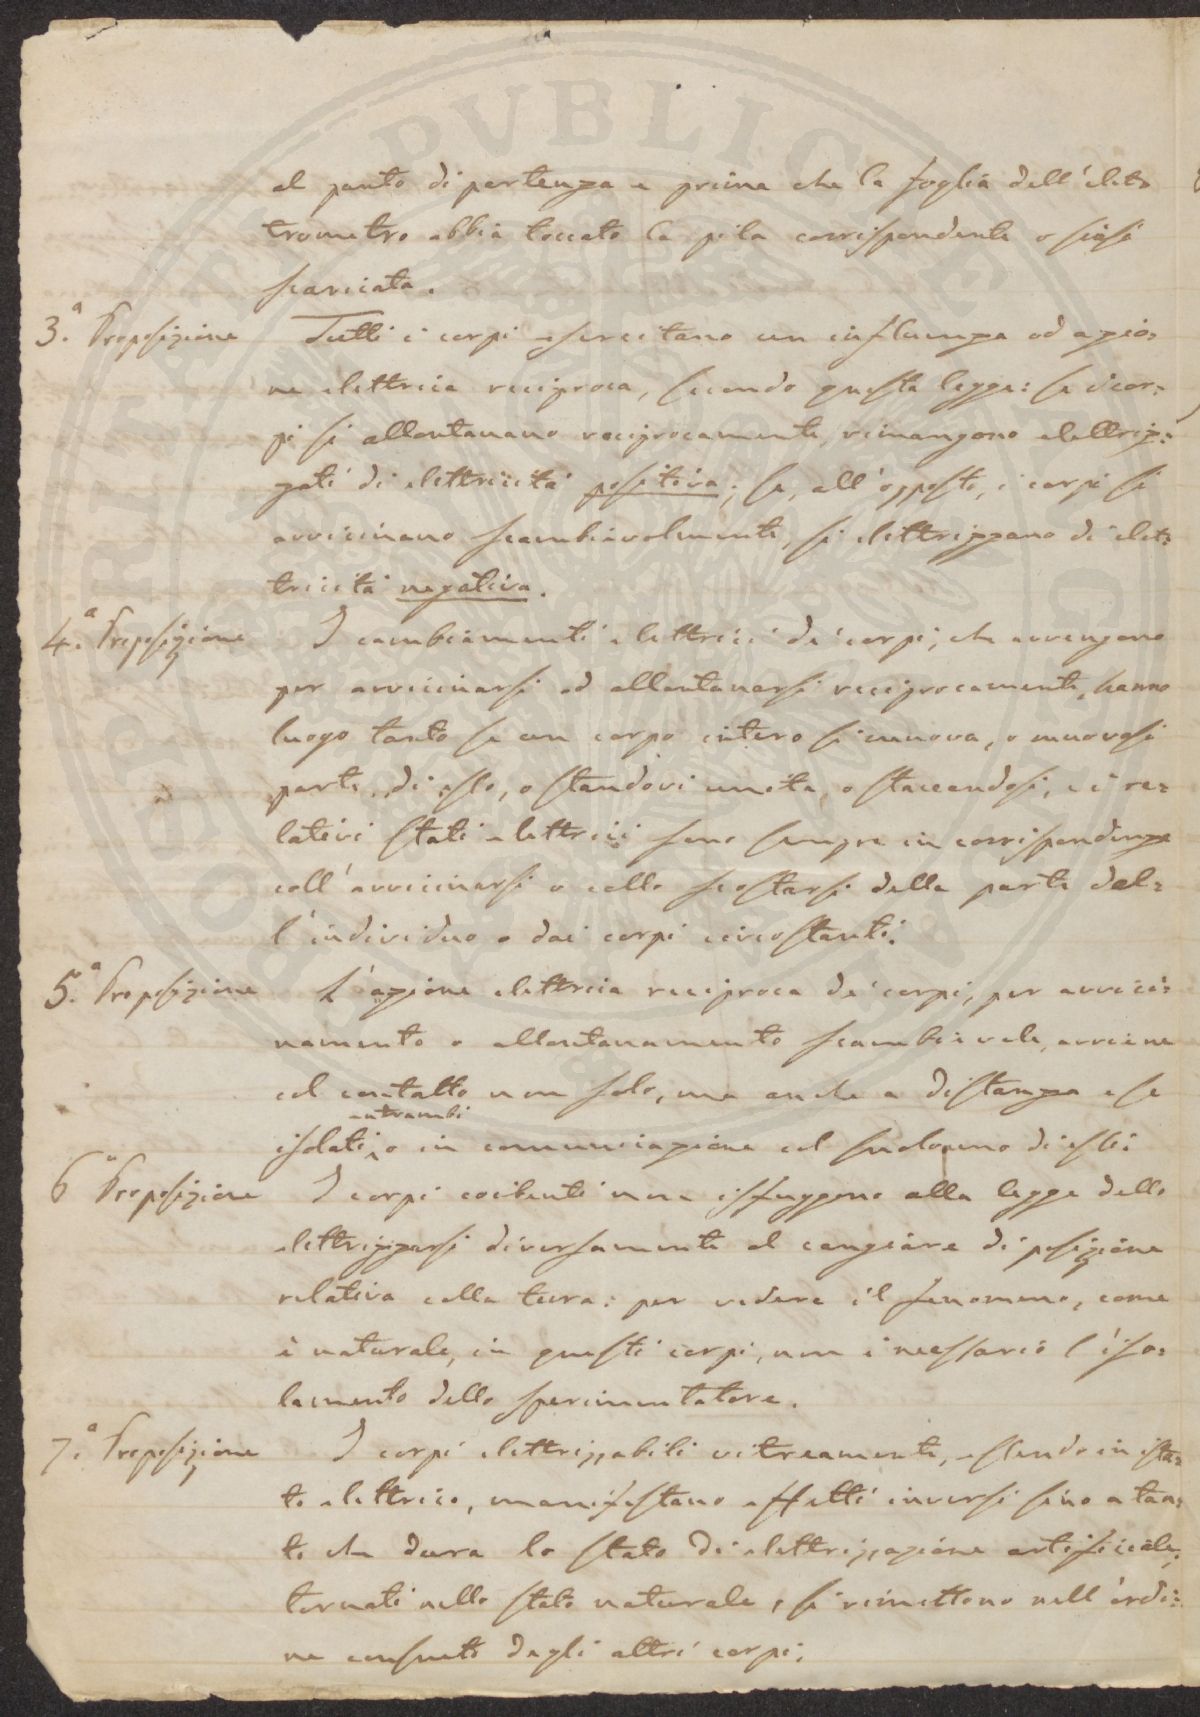 al punto di partenza e prima che la foglia dell'elet=
trometro abbia toccato la pila corrispondente o siasi
scaricata.
3.a Proposizione Tutti i corpi esercitano un influenza od azio=
ne elettrica reciproca, secondo questa legge: se i cor=
pi si allontanano reciprocamente, rimangono elettriz=
zati di elettricità positiva; se, all'opposto, i corpi si
avvicinano scambievolmente, si elettrizzano di elet=
tricità negativa.
4.a Proposizione I cambiamenti elettrici de' corpi, che avvengono
per avvicinarsi od allontanarsi reciprocamente, hanno
luogo tanto se un corpo intero si muova, o muovasi
parte di esso, o standovi unita, o staccandosi, e i re=
lativi stati elettrici sono sempre in corrispondenza
coll'avvicinarsi o collo scostarsi della parte dal=
l'individuo o dai corpi circostanti.
5.a Proposizione L'azione elettrica reciproca de' corpi, per avvici=
namento o allontanamento scambievole, avviene
col contatto non solo, ma anche a distanza e se
entrambi
isolati, o in comunicazione col suolo uno di essi.
6a Proposizione I corpi coibenti non isfuggono alla legge dello
elettrizzarsi diversamente al cangiare di posizione
relativa colla terra: per vedere il fenomeno, come
è naturale, in questi corpi, non è necessario l'iso=
lamento dello sperimentatore.
7.a Proposizione I corpi elettrizzabili vitreamente, essendo in ista=
to elettrico, manifestano effetti inversi sino a tan=
to che dura lo stato di elettrizzazione artificiale;
tornati nello stato naturale, si rimettono nell'ordi=
ne consueto degli altri corpi.